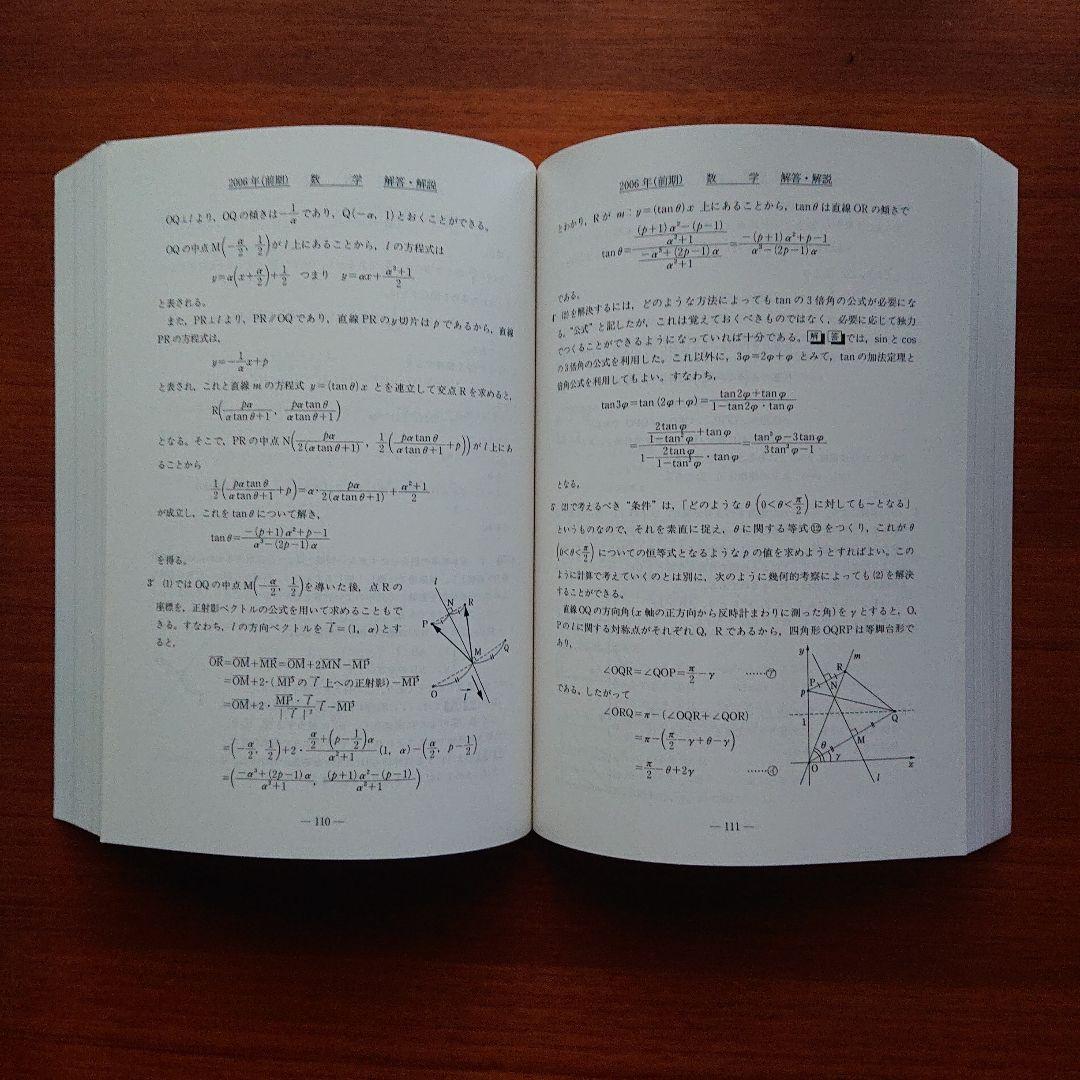 2006年(前期) 数 学 解答・解説
OQ⊥lより，OQの傾きは-1/αであり，Q(-α, 1)とおくことができる。
OQの中点M(-α/2, 1/2)がl上にあることから，lの方程式は
y=α(x+α/2)+1/2 つまり y=αx+(α²+1)/2
と表される。
また，PR⊥lより，PR∥OQであり，直線PRのy切片はpであるから，直線
PRの方程式は，
y=-1/α x+p
と表され，これと直線mの方程式 y=(tanθ)x とを連立して交点Rを求めると，
R(pα/(αtanθ+1), pαtanθ/(αtanθ+1))
となる。そこで，PRの中点N(pα/2(αtanθ+1), 1/2(pαtanθ/(αtanθ+1)+p))がl上にあ
ることから
1/2(pαtanθ/(αtanθ+1)+p)=α·pα/2(αtanθ+1)+(α²+1)/2
が成立し，これをtanθについて解き，
tanθ=(-(p+1)α²+p-1)/(α³-(2p-1)α)
を得る。
3° (1)ではOQの中点M(-α/2, 1/2)を導いた後，点Rの
座標を，正射影ベクトルの公式を用いて求めることもで
きる。すなわち，lの方向ベクトルをl⃗=(1, α)とす
ると，
OR⃗=OM⃗+MR⃗=OM⃗+2MN⃗-MP⃗
=OM⃗+2·(MP⃗のl⃗上への正射影)-MP⃗
=OM⃗+2·(MP⃗·l⃗)/|l⃗|² l⃗-MP⃗
=(-α/2, 1/2)+2·(α/2+(p-1/2)α)/(α²+1)(1, α)-(α/2, p-1/2)
=((-α³+(2p-1)α)/(α²+1), ((p+1)α²-(p-1))/(α²+1))
l
N
R
P
M
Q
O
l⃗
—110—
2006年(前期) 数 学 解答・解説
とわかり，Rが m：y=(tanθ)x 上にあることから，tanθは直線ORの傾きで
tanθ=(((p+1)α²-(p-1))/(α²+1))/((-α³+(2p-1)α)/(α²+1))=(-(p+1)α²+p-1)/(α³-(2p-1)α)
である。
(2)を解決するには，どのような方法によってもtanの3倍角の公式が必要にな
る。“公式”と記したが，これは覚えておくべきものではなく，必要に応じて独力
でつくることができるようになっていれば十分である。解答では，sinとcos
の3倍角の公式を利用した。これ以外に，3φ=2φ+φ とみて，tanの加法定理と
倍角公式を利用してもよい。すなわち，
tan3φ=tan(2φ+φ)=(tan2φ+tanφ)/(1-tan2φ·tanφ)
=(2tanφ/(1-tan²φ)+tanφ)/(1-2tanφ/(1-tan²φ)·tanφ)=(tan³φ-3tanφ)/(3tan²φ-1)
となる。
5° (2)で考えるべき“条件”は，「どのようなθ(0<θ<π/2)に対しても～となる」
というものなので，それを素直に捉え，θに関する等式⑫をつくり，これがθ
(0<θ<π/2)についての恒等式となるようなpの値を求めようとすればよい。この
ように計算で考えていくのとは別に，次のように幾何的考察によっても(2)を解決
することができる。
直線OQの方向角(x軸の正方向から反時計まわりに測った角)をγとすると，O，
Pのlに関する対称点がそれぞれQ，Rであるから，四角形OQRPは等脚台形で
あり，
∠OQR=∠QOP=π/2-γ ……㋐
である。したがって
∠ORQ=π-(∠OQR+∠QOR)
=π-(π/2-γ+θ-γ)
=π/2-θ+2γ ……㋑
y
m
P
R
p
N
Q
1
M
θ
γ
O
x
l
—111—